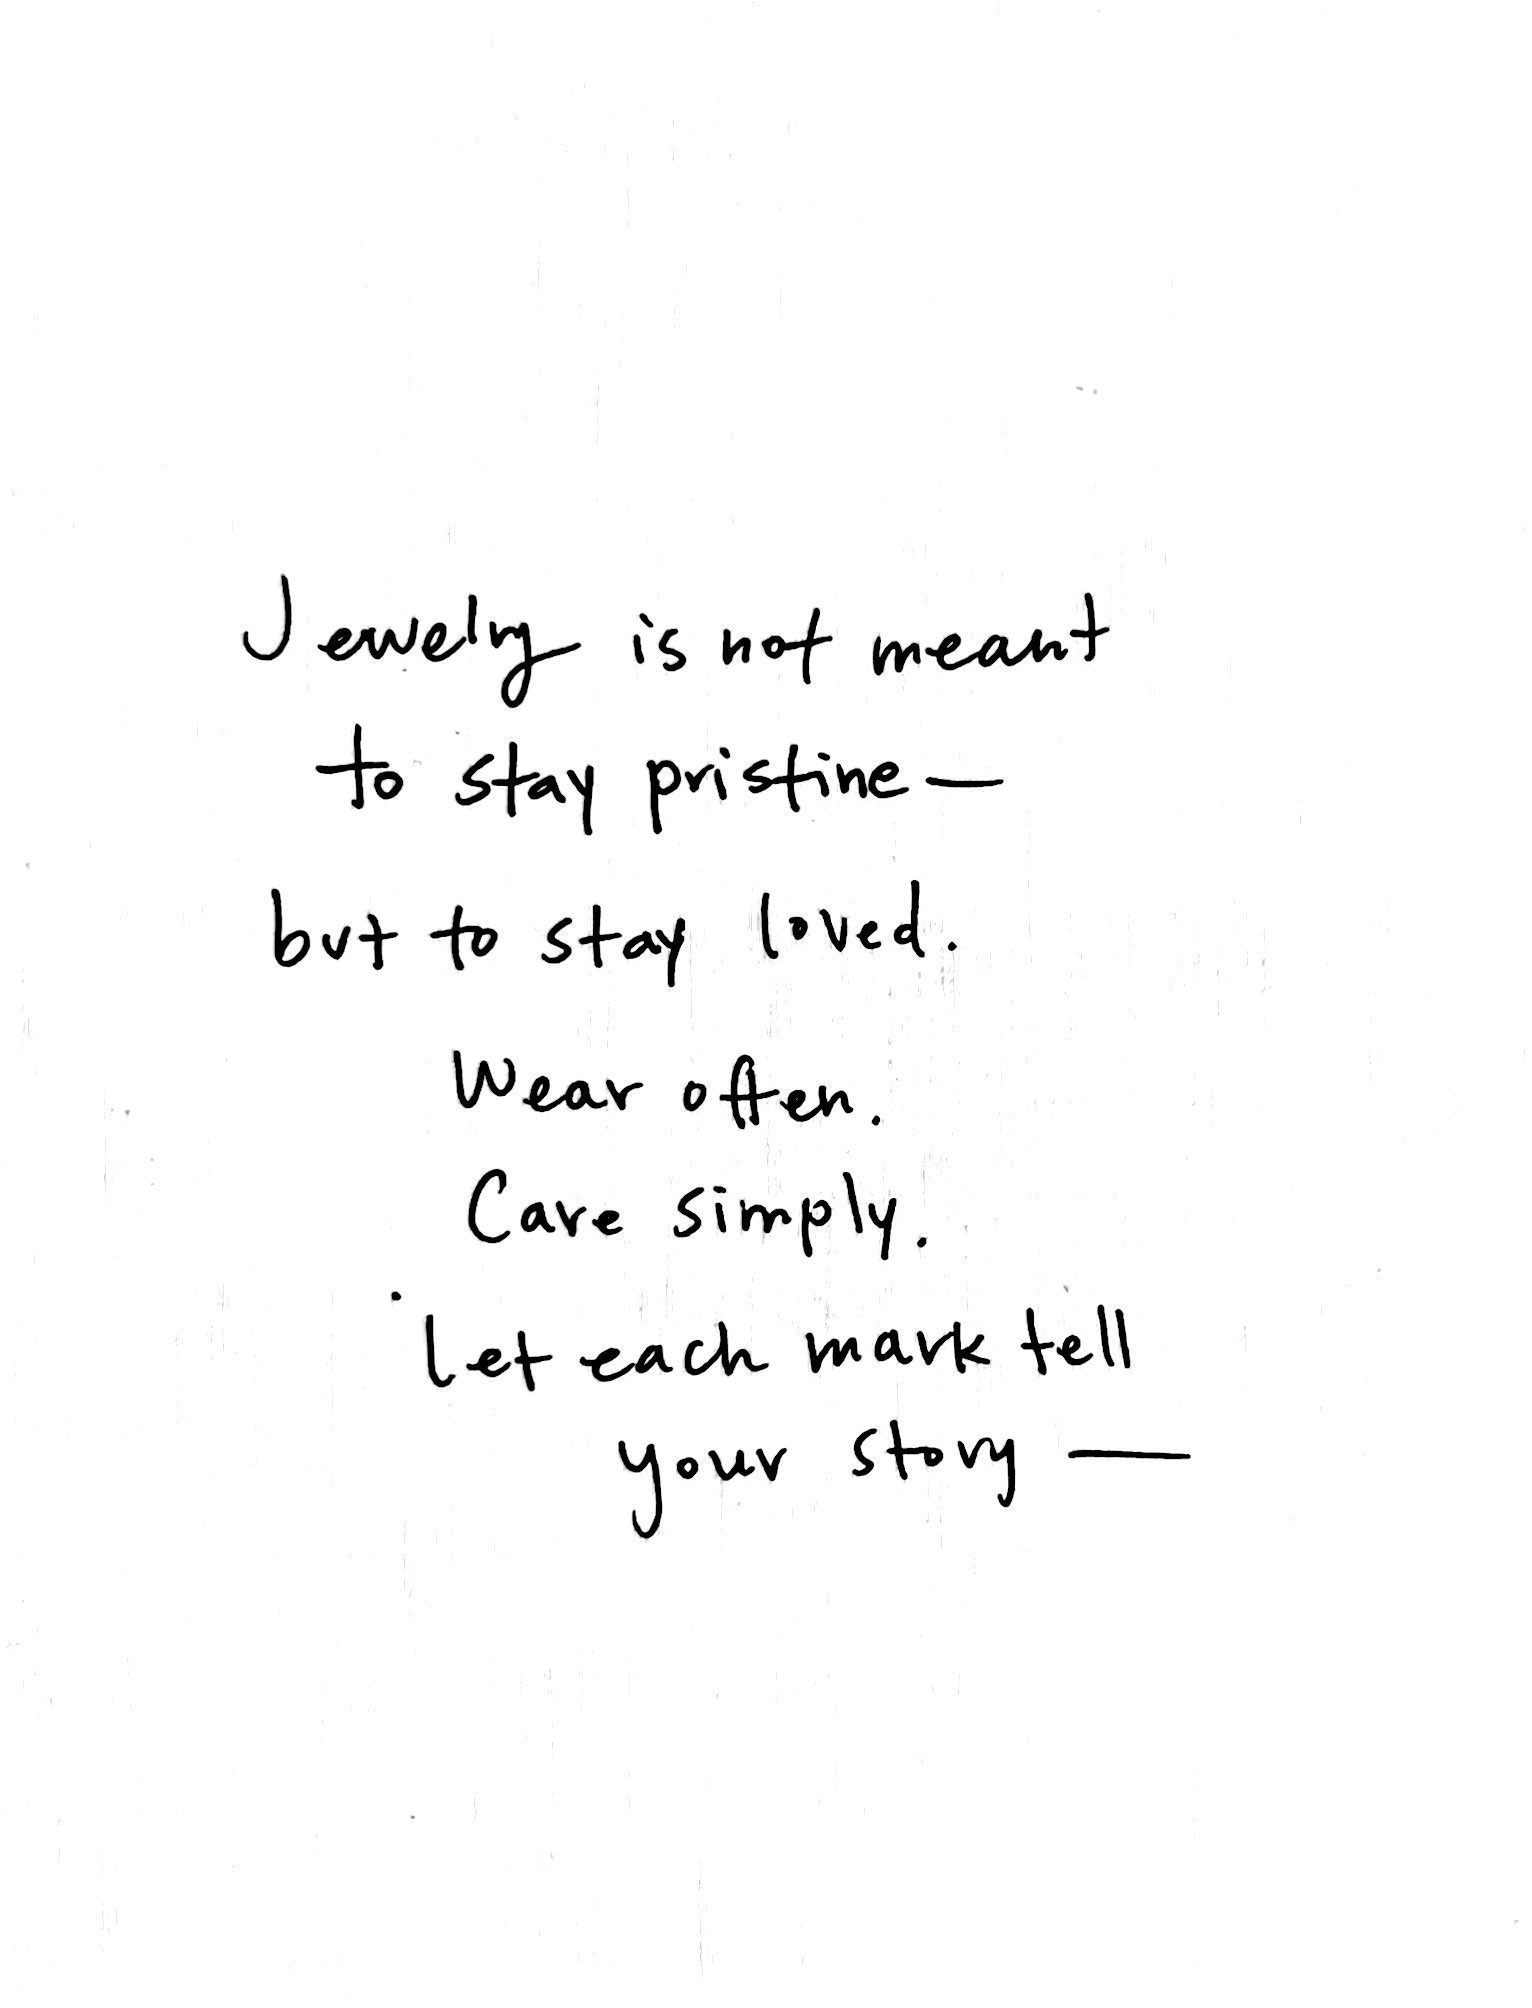 Jewelry is not meant
to stay pristine—
but to stay loved.
Wear often.
Care simply.
Let each mark tell
your story —